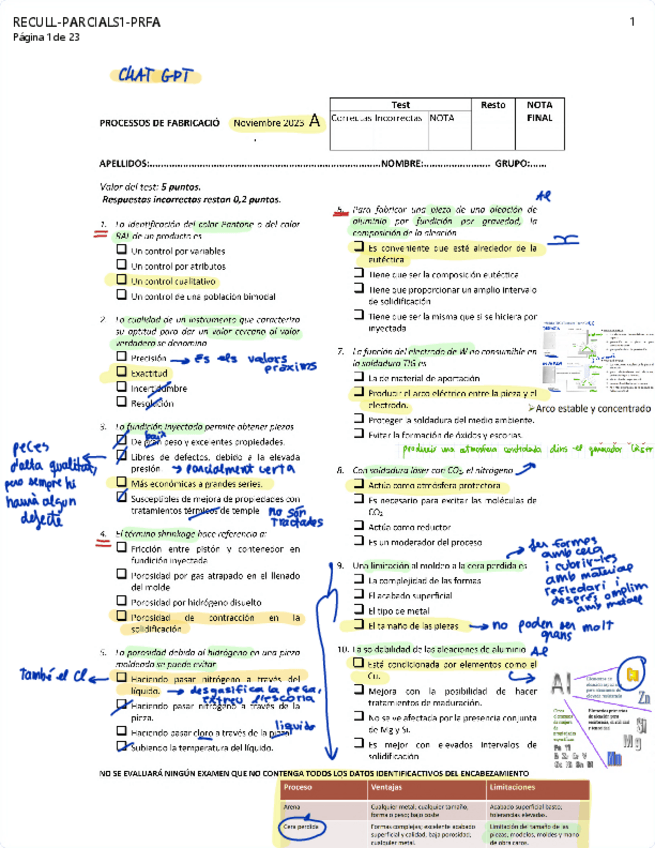 RECULL-PARCIALS1-PRFA
1
Página 1 de 23
CHAT GPT
PROCESSOS DE FABRICACIÓ Noviembre 2023 A
Test
Resto
NOTA FINAL
Correctas
Incorrectas
NOTA
APELLIDOS: NOMBRE: GRUPO:
Valor del test: 5 puntos.
Respuestas incorrectas restan 0,2 puntos.
1. La identificación del color Pantone o del color
RAL de un producto es
Un control por variables
Un control por atributos
Un control cualitativo
Un control de una población bimodal
2. La cualidad de un instrumento que caracteriza
su aptitud para dar un valor cercano al valor
verdadero se denomina
Precisión → És els valors
pròxims
Exactitud
Incertidumbre
Resolución
3. La fundición inyectada permite obtener piezas
De gran peso y excelentes propiedades.
baix
Libres de defectos, debido a la elevada
presión → parcialment certa
peces
d'alta qualitat,
pero sempre hi
haurà algun
defecte
Más económicas a grandes series.
Susceptibles de mejora de propiedades con
tratamientos térmicos de temple
no són
tractades
4. El término shrinkage hace referencia a:
Fricción entre pistón y contenedor en
fundición inyectada
Porosidad por gas atrapado en el llenado
del molde
Porosidad por hidrógeno disuelto
Porosidad de contracción en la
solidificación
5. La porosidad debida al hidrógeno en una pieza
moldeada se puede evitar
Haciendo pasar nitrógeno a través del
líquido. → desgasifica la peça,
també el Cl
Haciendo pasar nitrógeno a través de la
pieza.
Haciendo pasar cloro a través de la pieza
líquido
Subiendo la temperatura del líquido.
6. Para fabricar una pieza de una aleación de
aluminio por fundición por gravedad, la
composición de la aleación
Al
Es conveniente que esté alrededor de la
eutéctica
Tiene que ser la composición eutéctica
Tiene que proporcionar un amplio intervalo
de solidificación
Tiene que ser la misma que si se hiciera por
inyectada
7. La función del electrodo de W no consumible en
la soldadura TIG es
La de material de aportación
Producir el arco eléctrico entre la pieza y el
electrodo.
➢Arco estable y concentrado
Proteger la soldadura del medio ambiente.
Evitar la formación de óxidos y escorias.
produir una atmosfera controlada dins el generador làser
8. Con soldadura láser con CO₂, el nitrógeno
Actúa como atmósfera protectora
Es necesario para excitar las moléculas de
CO₂
Actúa como reductor
Es un moderador del proceso
9. Una limitación al moldeo a la cera perdida es
La complejidad de las formas
El acabado superficial
El tipo de metal
El tamaño de las piezas → no poden ser molt
grans
fer formes
amb cera
i cubrir-les
amb material
refractari i
després omplim
amb metall
10. La soldabilidad de las aleaciones de aluminio
Al
Está condicionada por elementos como el
Cu.
Mejora con la posibilidad de hacer
tratamientos de maduración.
No se ve afectada por la presencia conjunta
de Mg y Si.
Es mejor con elevados intervalos de
solidificación
Al
Cu
Zn
Si
Mg
Mn
NO SE EVALUARÁ NINGÚN EXAMEN QUE NO CONTENGA TODOS LOS DATOS IDENTIFICACTIVOS DEL ENCABEZAMIENTO
Proceso
Ventajas
Limitaciones
Arena
Cualquier metal, cualquier tamaño,
forma o peso; bajo coste
Acabado superficial basto,
tolerancias elevadas.
Cera perdida
Formas complejas; excelente acabado
superficial y calidad, baja porosidad;
cualquier metal.
Limitación del tamaño de las
piezas, modelos, moldes y mano
de obra caros.